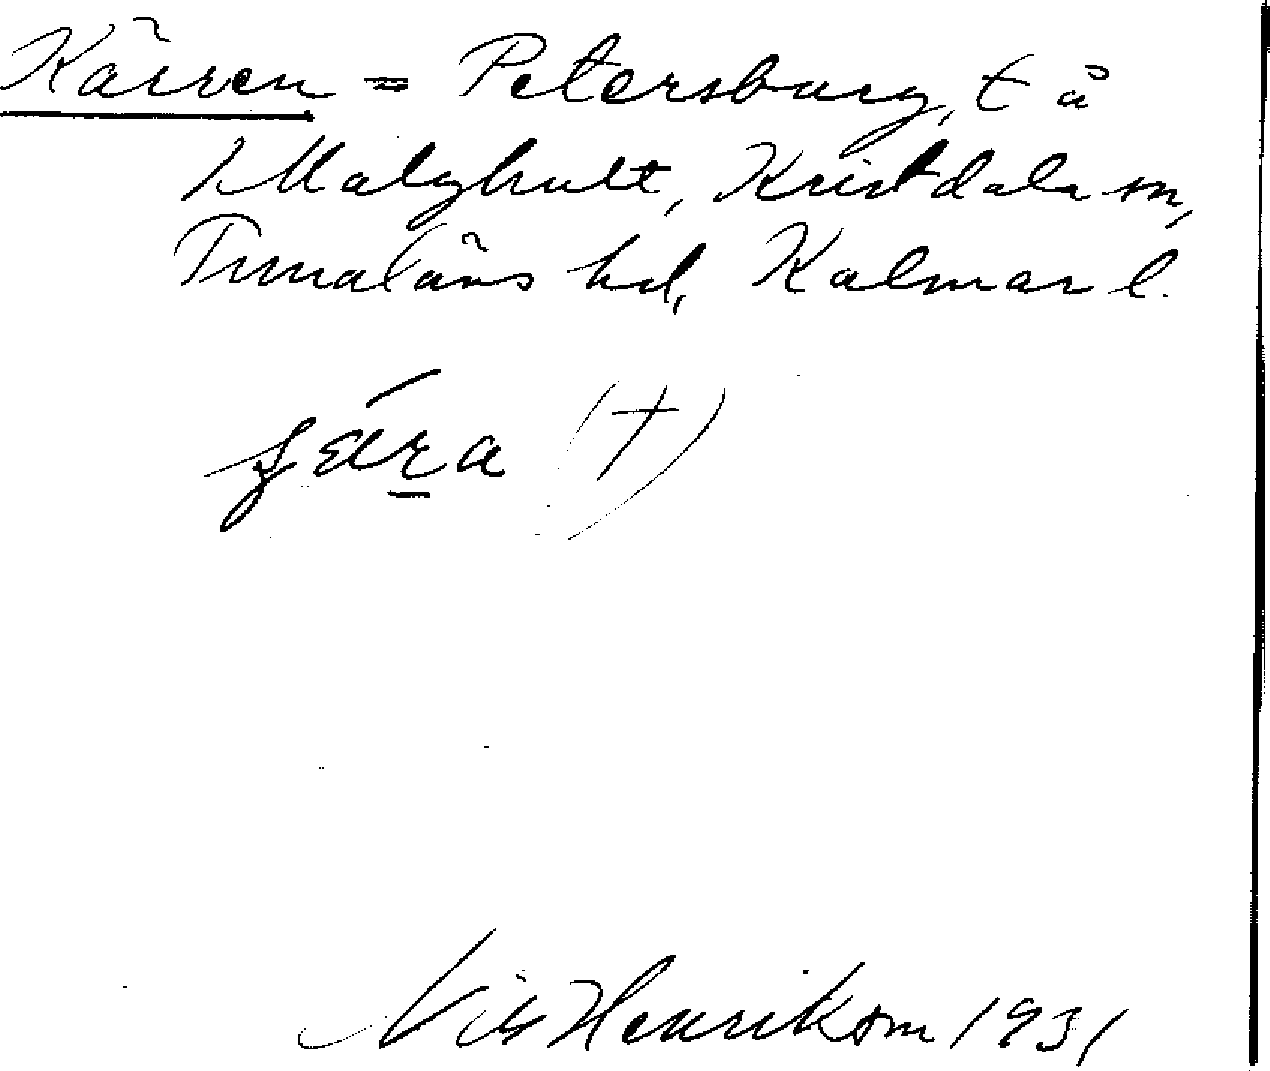 Kärren = Petersburg, t å
1 Malghult, Kristdala sn,
Tunaläns hd, Kalmar l.
(†)
Nils Henrikson 1931